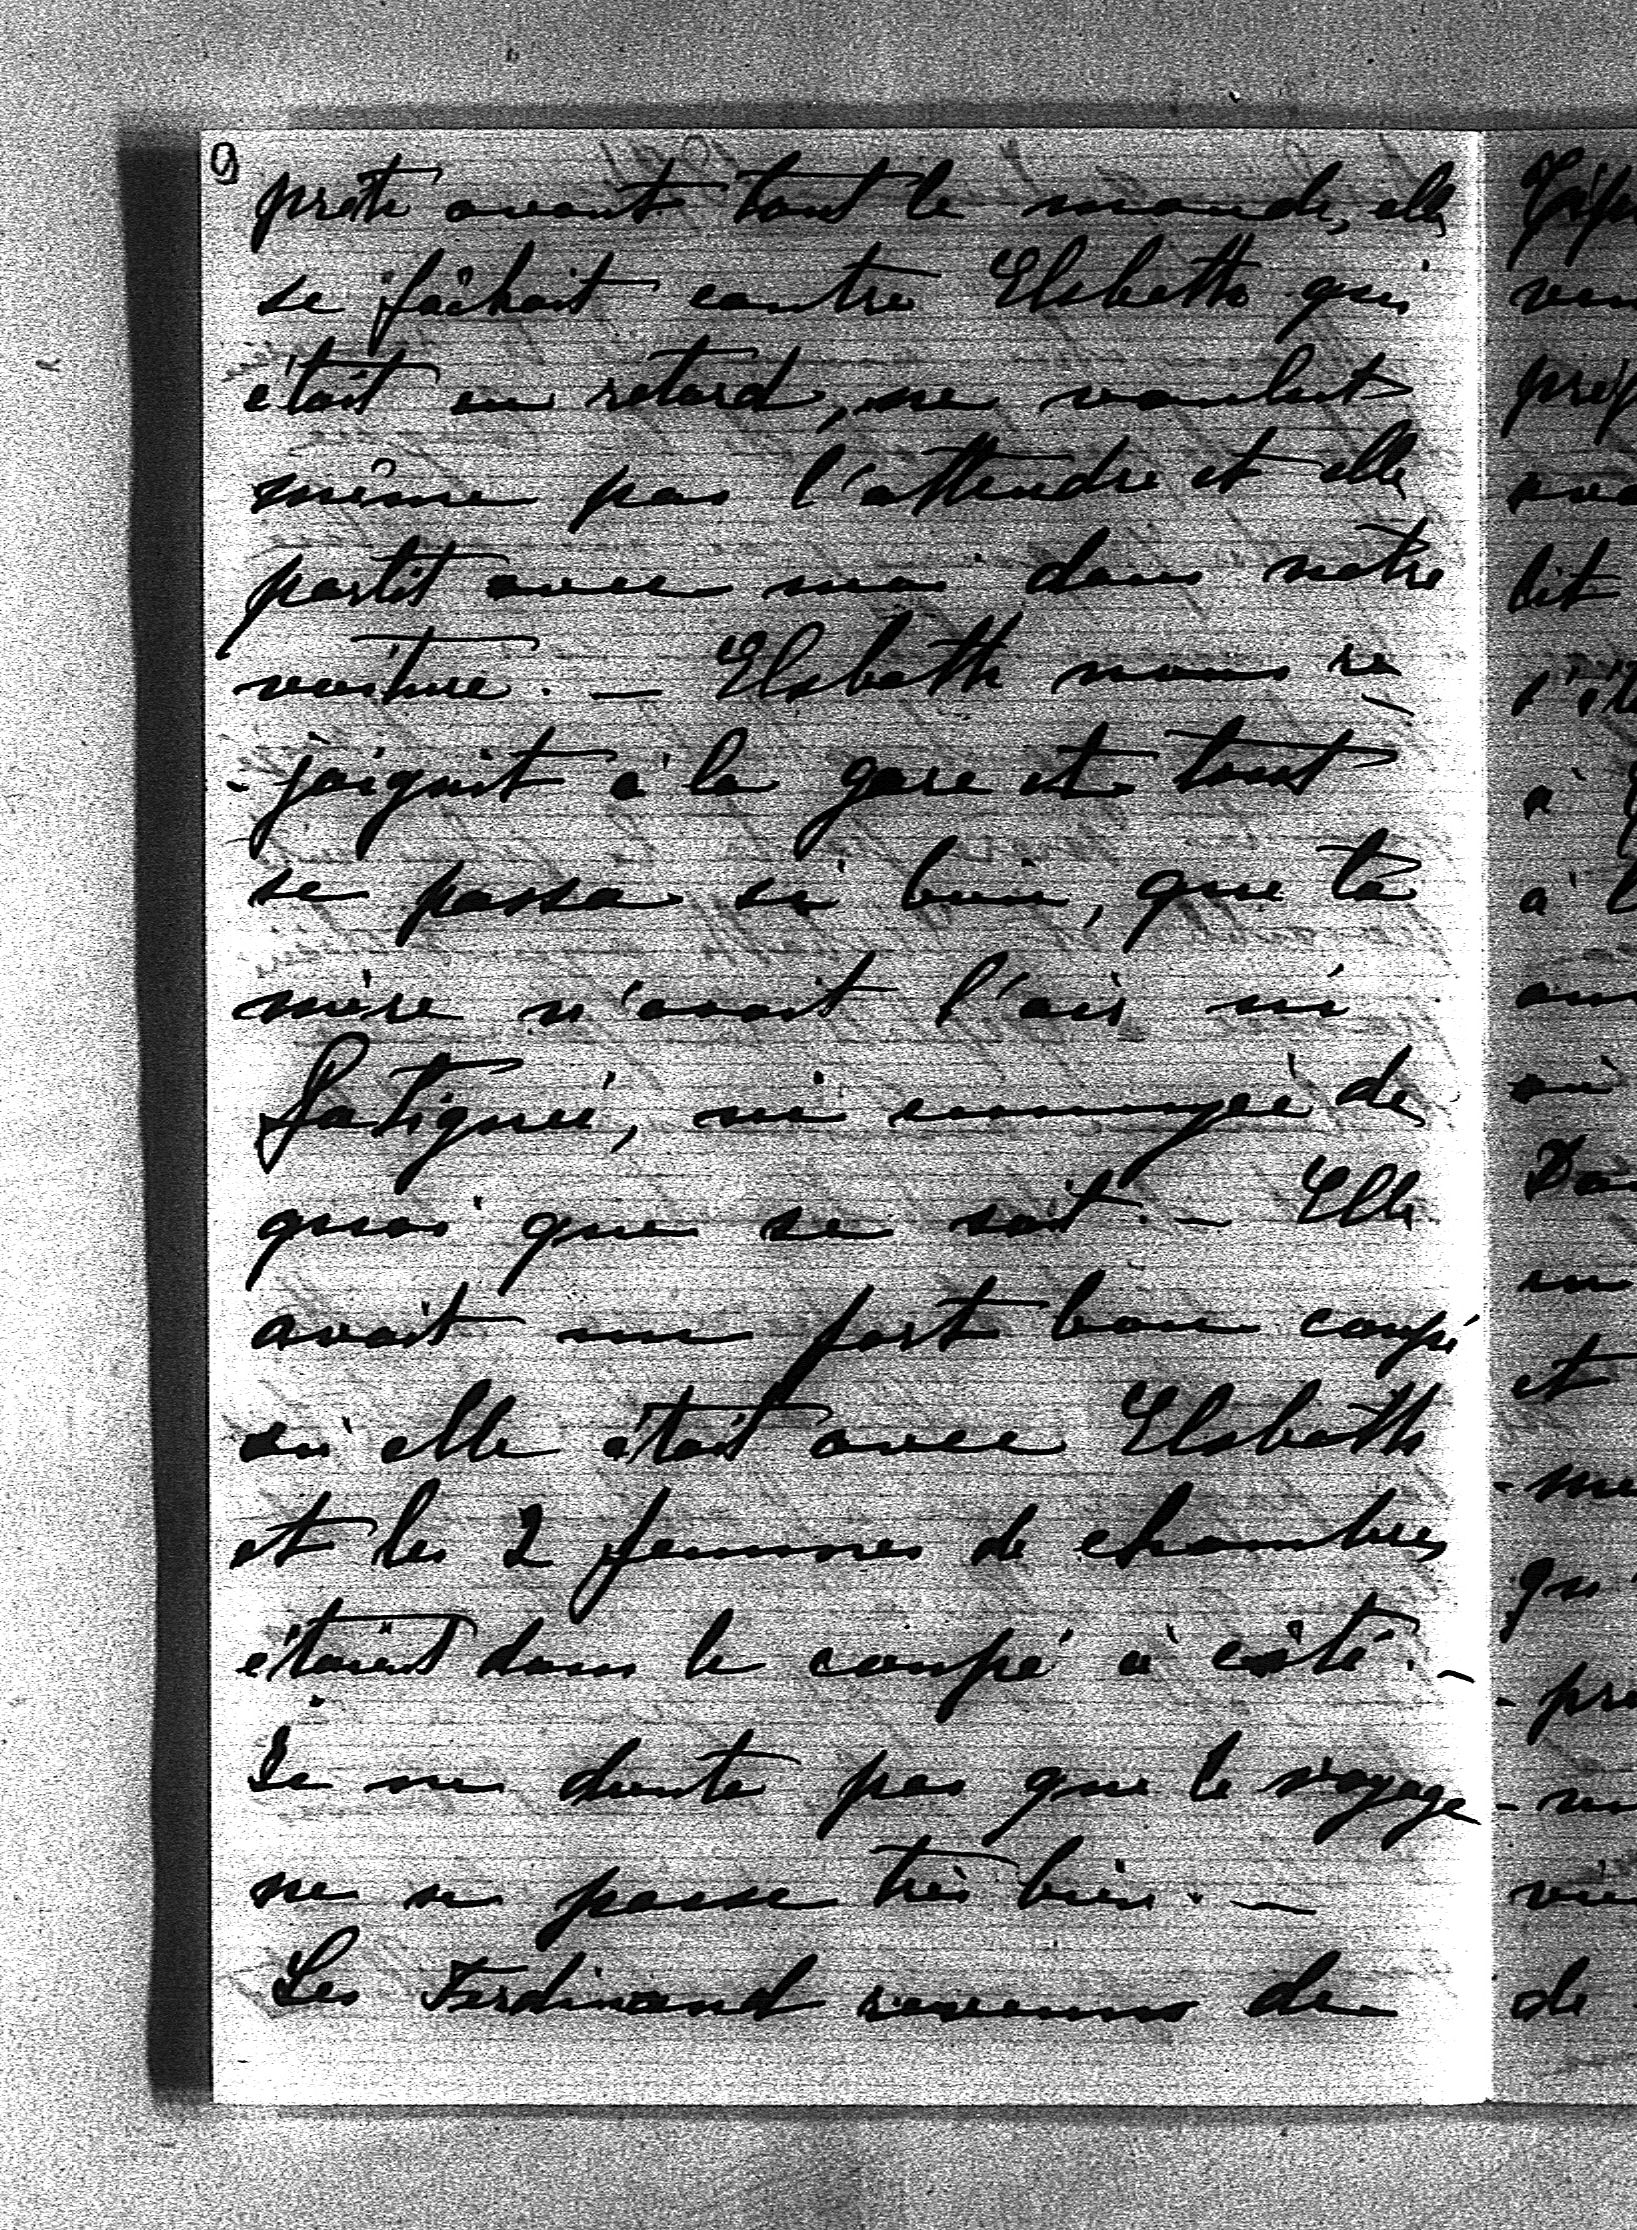 9
prête avant tout le monde, elle
se fâchait contre Elsbeth qui
était en retard, ne voulut
même pas l'attendre et elle
partit avec moi dans notre
voiture. — Elsbeth nous re
- joignit à la gare et tout
se passa si bien, que ta
mère n'avait l'air ni
fatiguée, ni ennuyée de
quoi que se soit. — Elle
avait un fort bon coupé
où elle était avec Elsbeth
et les 2 femmes de chambres
étaient dans le coupé à côté. —
Je ne doute pas que le voyage
ne se passe très bien. —
Les Ferdinand revenus de